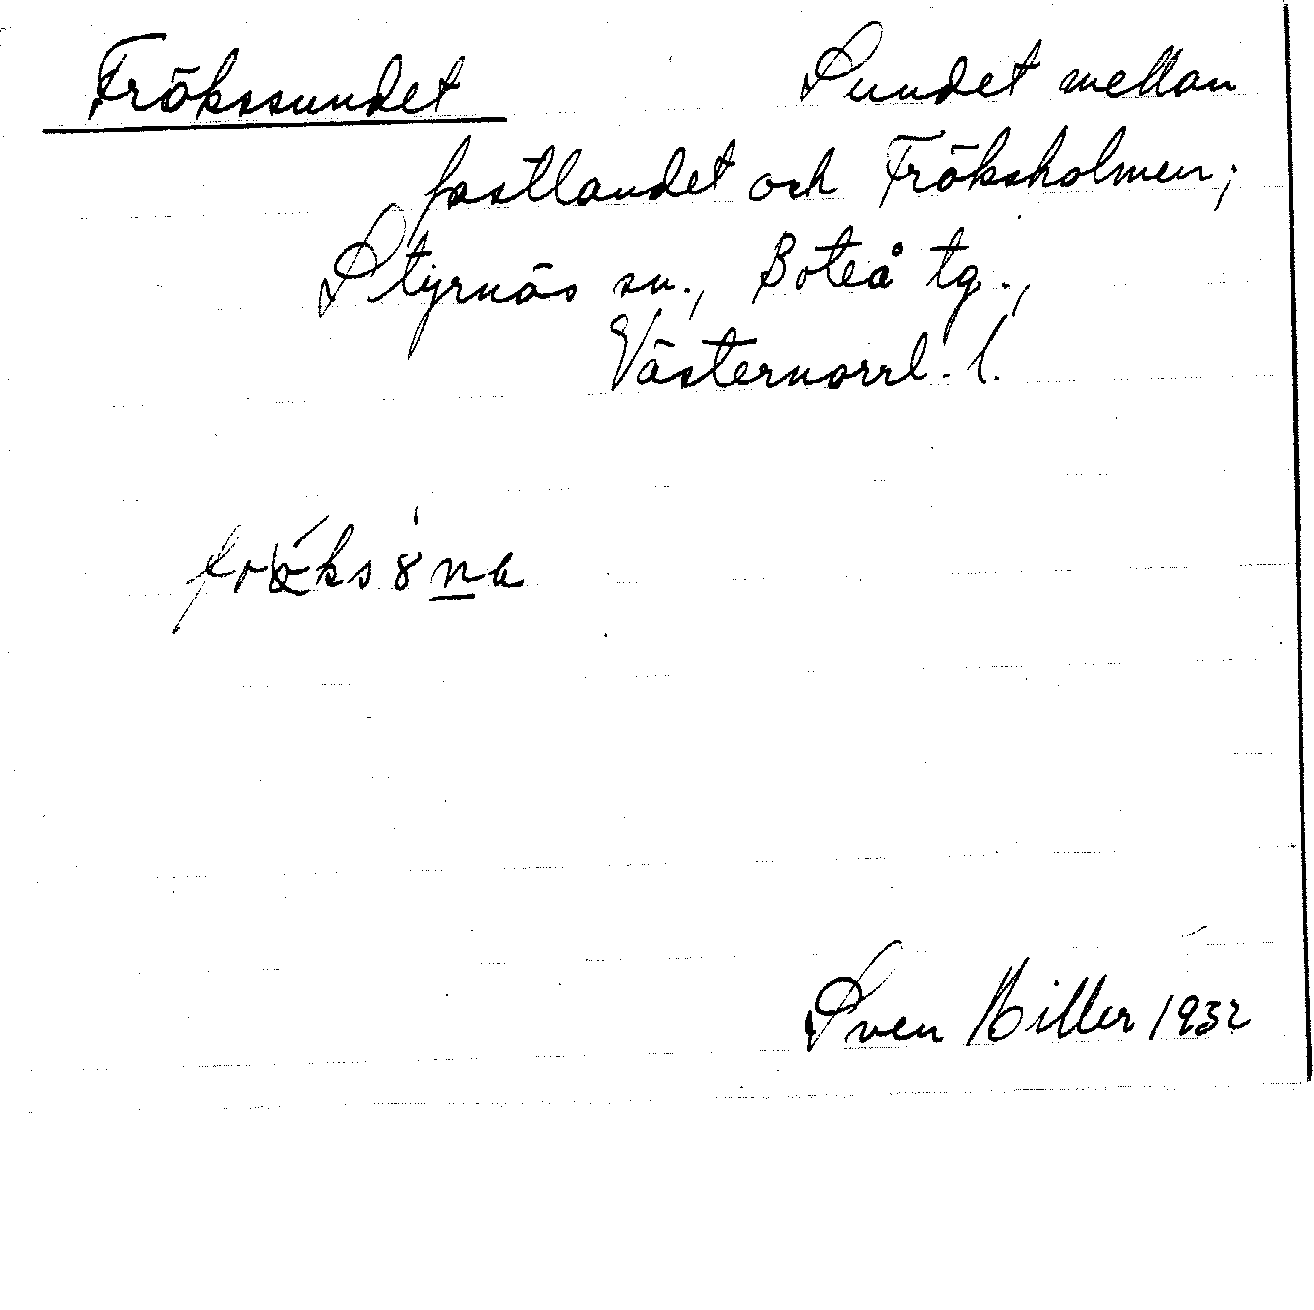 Frökssundet Sundet mellan
fastlandet och Fröksholmen;
Styrnäs sn., Boteå tg.,
Västernorrl. l.
Sven Hiller 1932